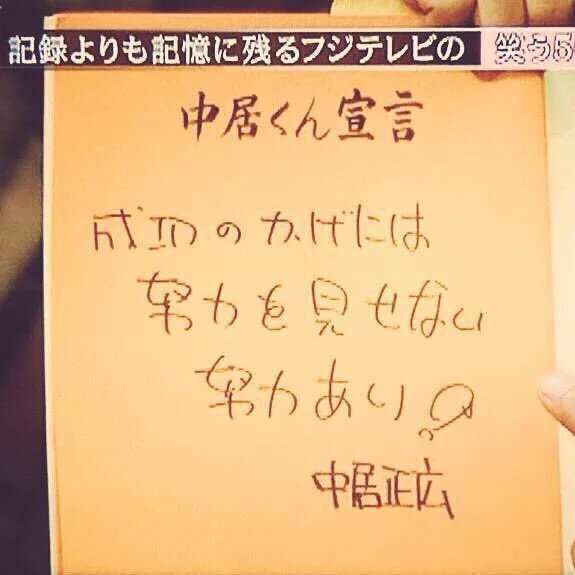 記録よりも記憶に残るフジテレビの 笑う5
中居くん宣言
成功のかげには
努力を見せない
努力あり。
中居正広